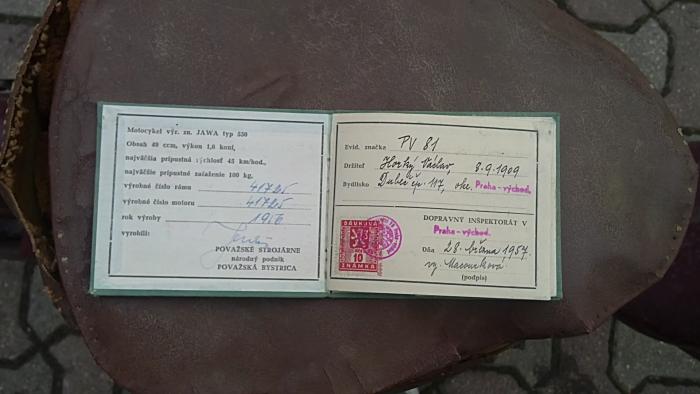 Motocykel výr. zn. JAWA typ 550
Obsah 49 ccm, výkon 1,6 koní,
najväčšia prípustná rýchlosť 45 km/hod.,
najväčšie prípustné zaťaženie 100 kg,
výrobné číslo rámu 41725
výrobné číslo motoru 41725
rok výroby 1956
vyrobili:
POVAŽSKÉ STROJÁRNE
národný podnik
POVAŽSKÁ BYSTRICA
Evid. značka PV 81
Držiteľ Horký Václav, 8.9.1909
Bydlisko Dubeč čp. 117, okr. Praha-východ.
DOPRAVNÝ INŠPEKTORÁT V
Praha-východ.
Dňa 28. března 1957.
(podpis)
DAVKOVÁ
10
ZNÁMKA